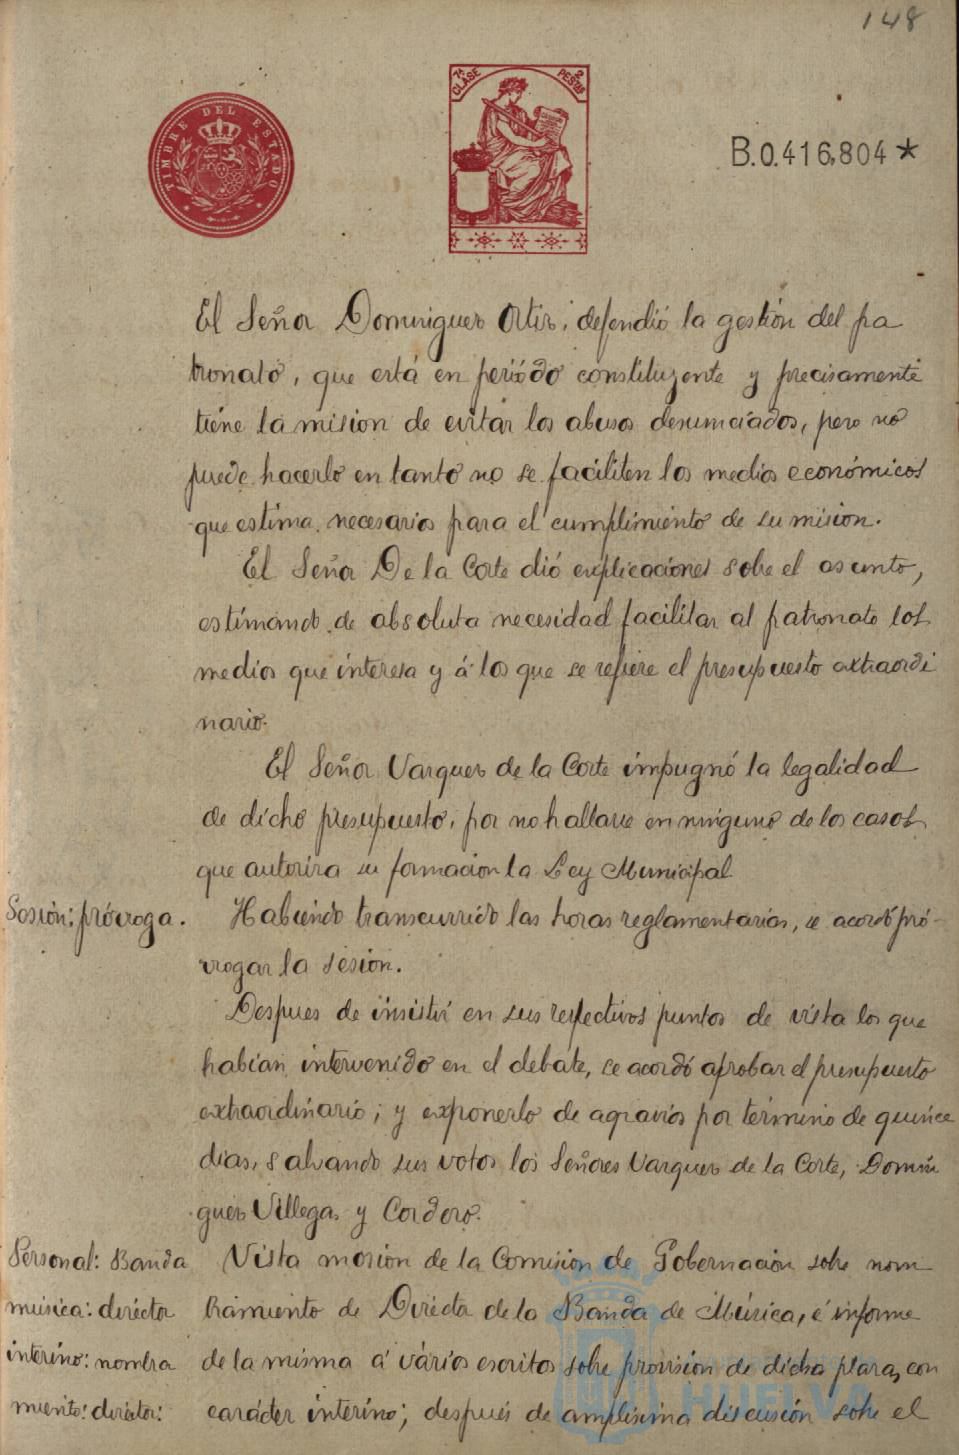 148
TIMBRE DEL ESTADO
7ª CLASE 2 PESTAS
B.0.416,804 *
El Señor Dominguez Ortiz, defendió la gestión del pa
tronato, que está en período constituyente y precisamente
tiene la mision de evitar los abusos denunciados, pero no
puede hacerlo en tanto no se faciliten los medios económicos
que estima necesarios para el cumplimiento de su mision.
El Señor De la Corte dió explicaciones sobre el asunto,
estimando de absoluta necesidad facilitar al patronato los
medios que interesa y á los que se refiere el presupuesto extraordi
nario.
El Señor Vazquez de la Corte impugnó la legalidad
de dicho presupuesto, por no hallarse en ninguno de los casos
que autoriza su formacion la Ley Municipal
Sesión: próroga. Habiendo transcurrido las horas reglamentarias, se acordó pró-
rrogar la sesión.
Despues de insistir en sus respectivos puntos de vista los que
habían intervenido en el debate, se acordó aprobar el presupuesto
extraordinario; y exponerlo de agravios por término de quince
dias, salvando sus votos los Señores Vazquez de la Corte, Domin
guez Villegas y Cordero.
Personal: Banda Vista mocion de la Comision de Gobernación sobre nom
música: director bramiento de Director de la Banda de Música, é informe
interino: nombra de la misma á vários escritos sobre provisión de dicha plaza, con
miento: director: carácter interino; después de amplísima discusión sobre el
HUELVA